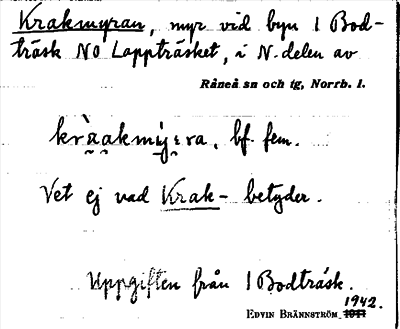 Krakmyran, myr vid byn 1 Bod-
träsk NO Lappträsket, i N. delen av
Råneå sn och tg, Norrb. l.
kràakmy̱:ra, bf. fem.
Vet ej vad Krak- betyder.
Uppgiften från 1 Bodträsk.
1942.
EDVIN BRÄNNSTRÖM